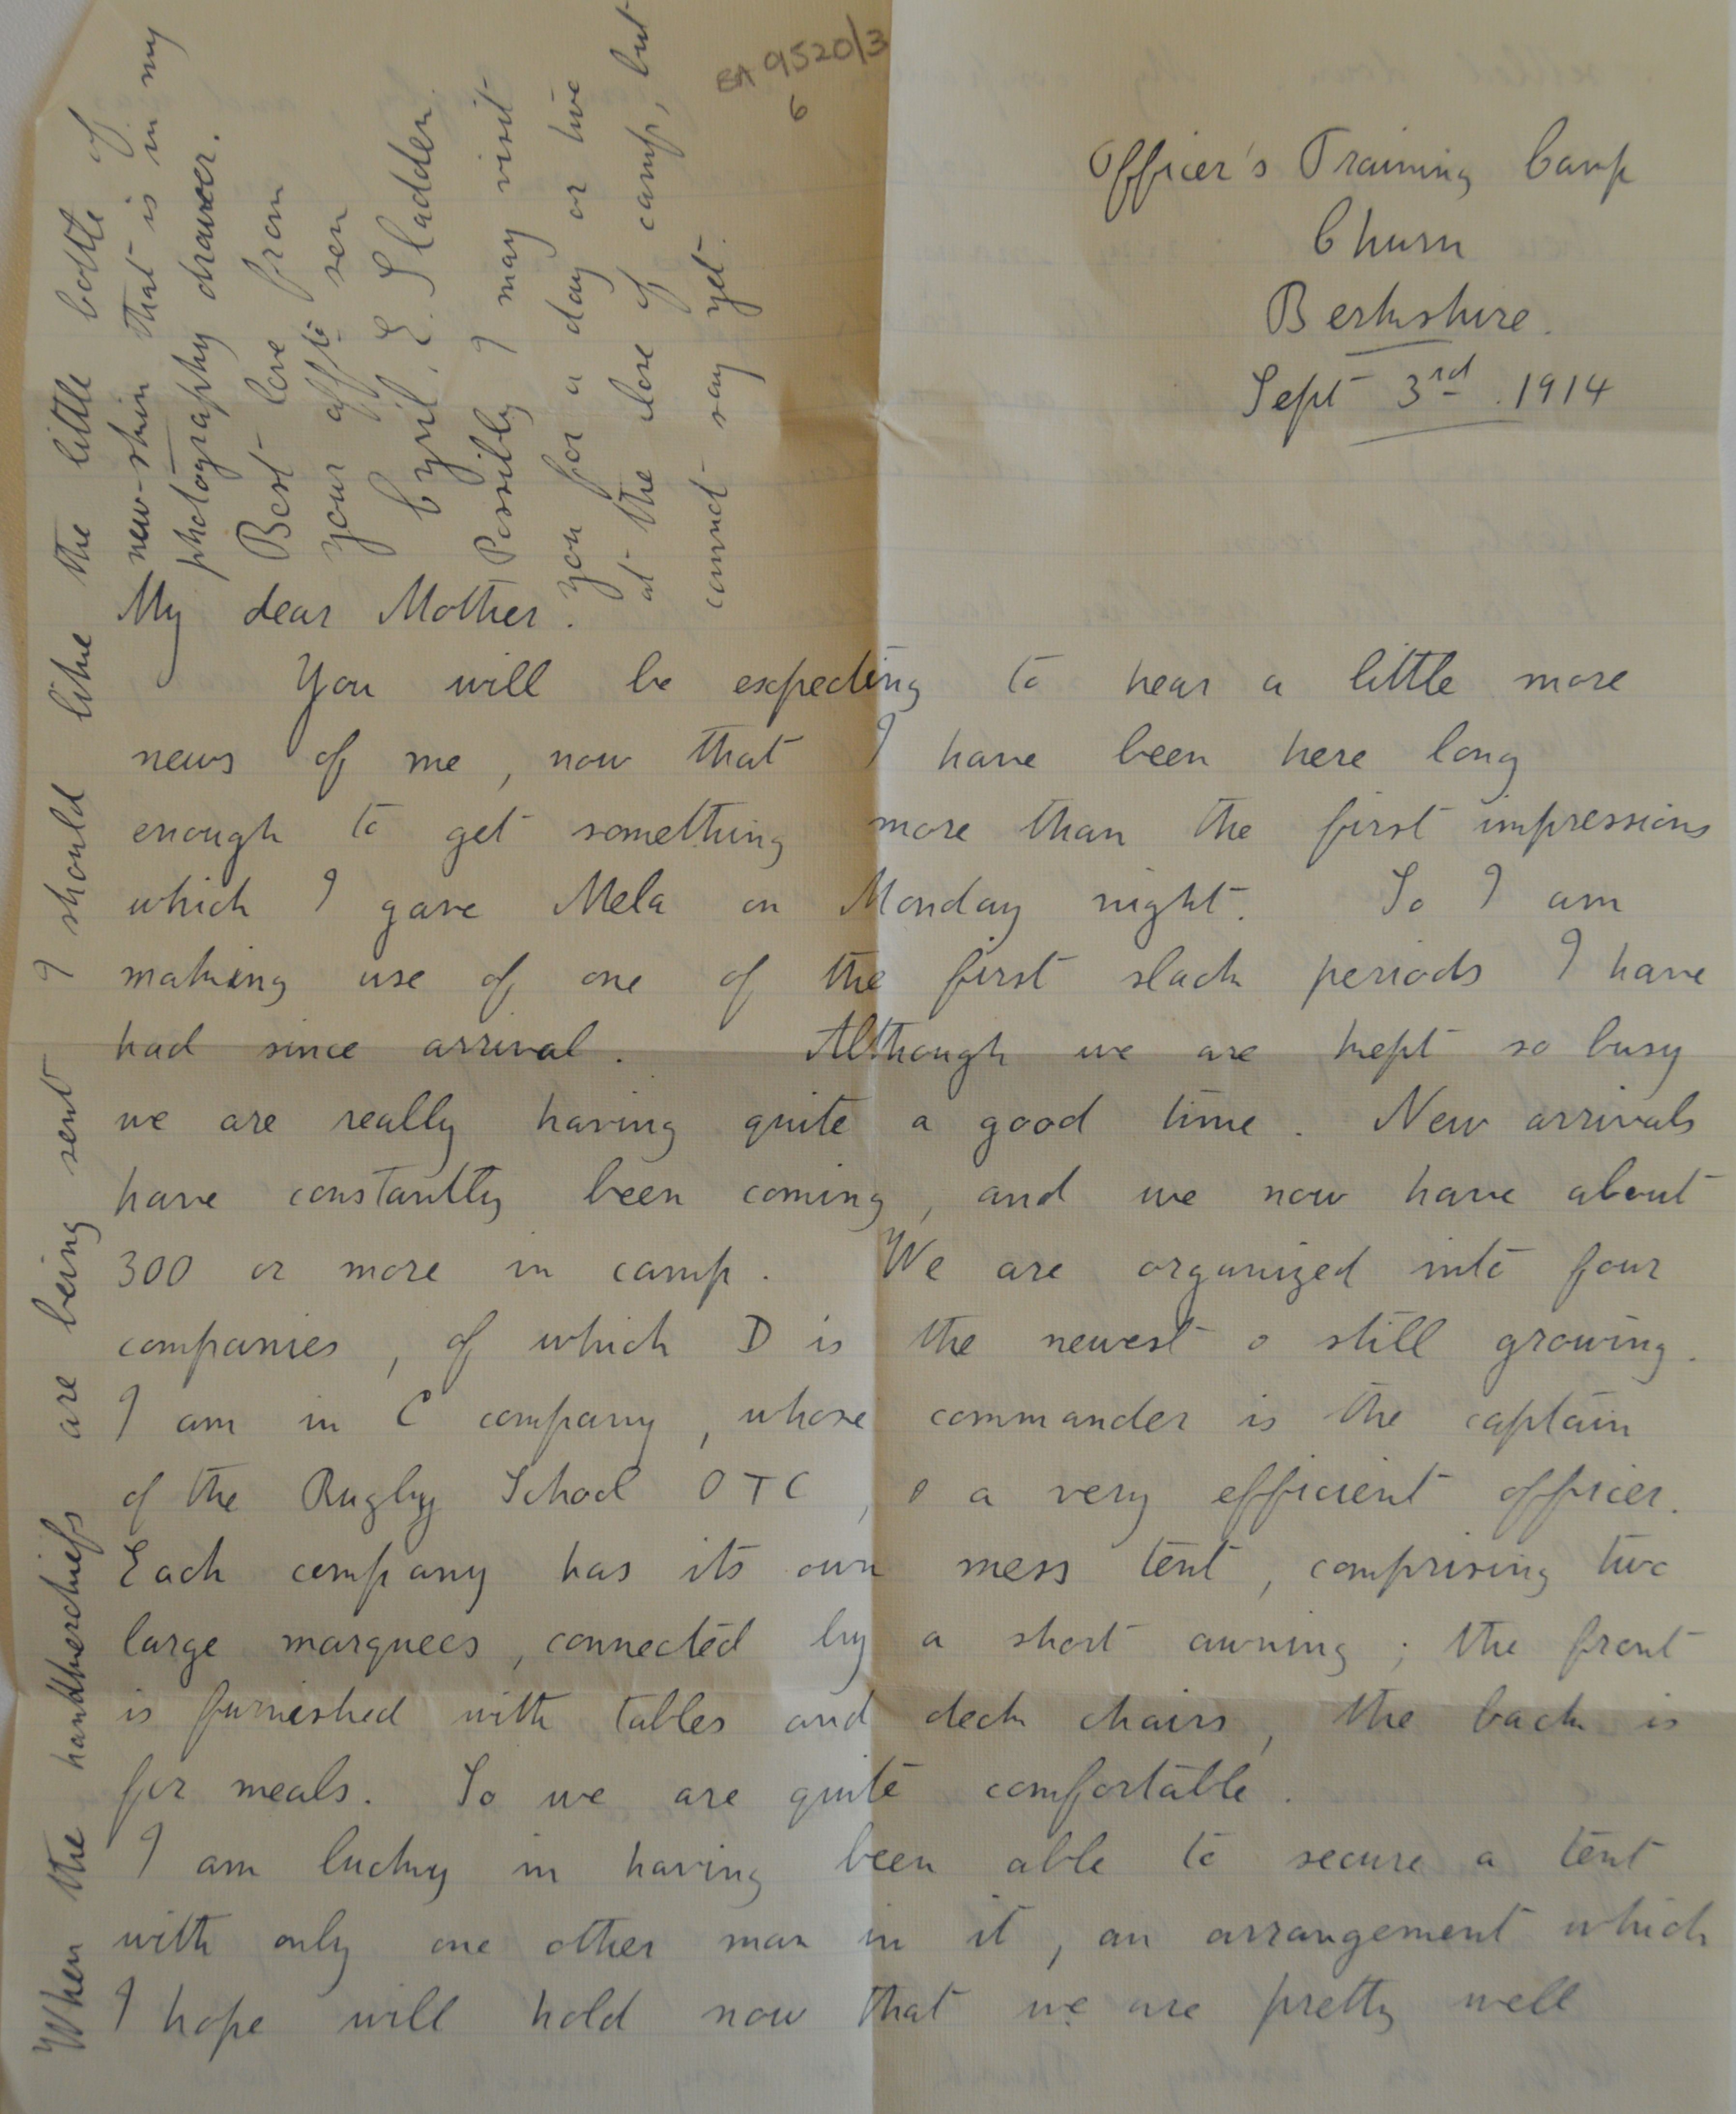 EA 9520/3
6
Officer's Training Camp
Churn
Berkshire.
Sept 3rd. 1914
My dear Mother.
You will be expecting to hear a little more
news of me, now that I have been here long
enough to get something more than the first impressions
which I gave Mela on Monday night. So I am
making use of one of the first slack periods I have
had since arrival. Although we are kept so busy
we are really having quite a good time. New arrivals
have constantly been coming, and we now have about
300 or more in camp. We are organized into four
companies, of which D is the newest & still growing.
I am in C company, whose commander is the captain
of the Rugby School OTC, & a very efficient officer.
Each company has its own mess tent, comprising two
large marquees, connected by a short awning; the front
is furnished with tables and deck chairs, the back is
for meals. So we are quite comfortable.
I am lucky in having been able to secure a tent
with only one other man in it, an arrangement which
I hope will hold now that we are pretty well
When the handkerchiefs are being sent I should like the little bottle of
new-skin that is in my
photography drawer.
Best love from
your affte son
Cyril. E. Sladden.
Possibly I may visit
you for a day or two
at the close of camp, but
cannot say yet.